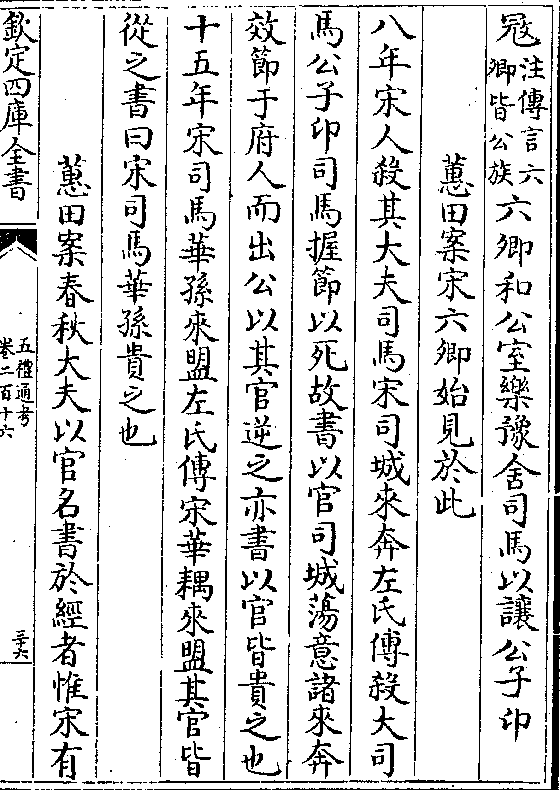 冦注傳言六
卿皆公族六卿和公室樂豫舍司馬以讓公子卬
蕙田案宋六卿始見於此
八年宋人殺其大夫司馬宋司城來奔左氏傳殺大司
馬公子卬司馬握節以死故書以官司城蕩意諸來奔
效節于府人而出公以其官逆之亦書以官皆貴之也
十五年宋司馬華孫來盟左氏傳宋華耦來盟其官皆
從之書曰宋司馬華孫貴之也
蕙田案春秋大夫以官名書於經者惟宋有
欽定四庫全書
五禮通考
卷二百十六
三十六